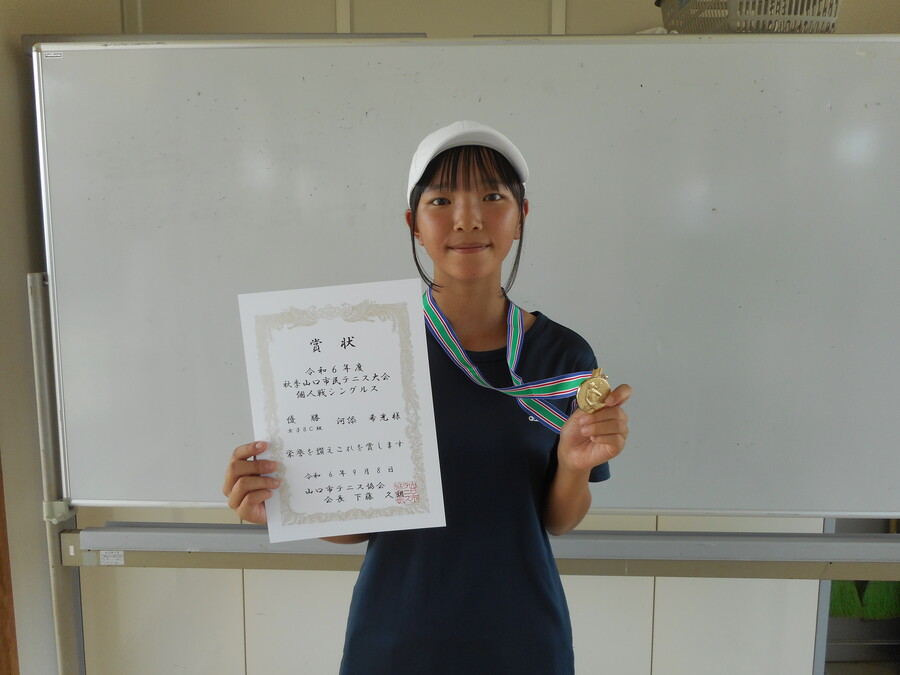 賞状
令和6年度
秋季山口市民テニス大会
個人戦シングルス
優勝 河添 希光様
女子BC級
栄誉を讃えこれを賞します
令和6年9月8日
山口市テニス協会
会長 下藤 久